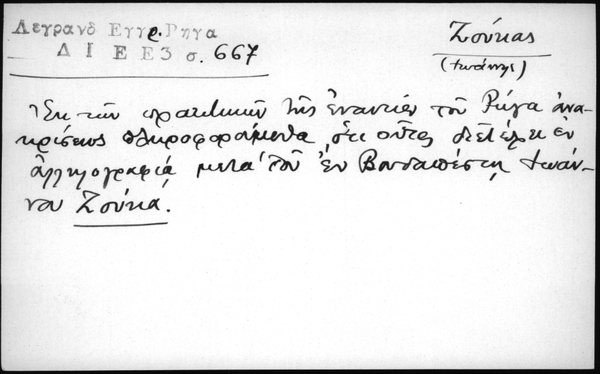 Λεγρανδ Εγγρ. Ρηγα
Δ Ι Ε Ε 3 σ. 667
Ζούκας
(Ιωάννης)
Ἐκ τῶν πρακτικῶν τῆς ἐναντίον τοῦ Ρήγα ἀνα-
κρίσεως πληροφορούμεθα, ὅτι οὗτος διετέλει ἐν
ἀλληλογραφίᾳ μετὰ τοῦ ἐν Βουδαπέστῃ Ἰωάν-
νου Ζούκα.